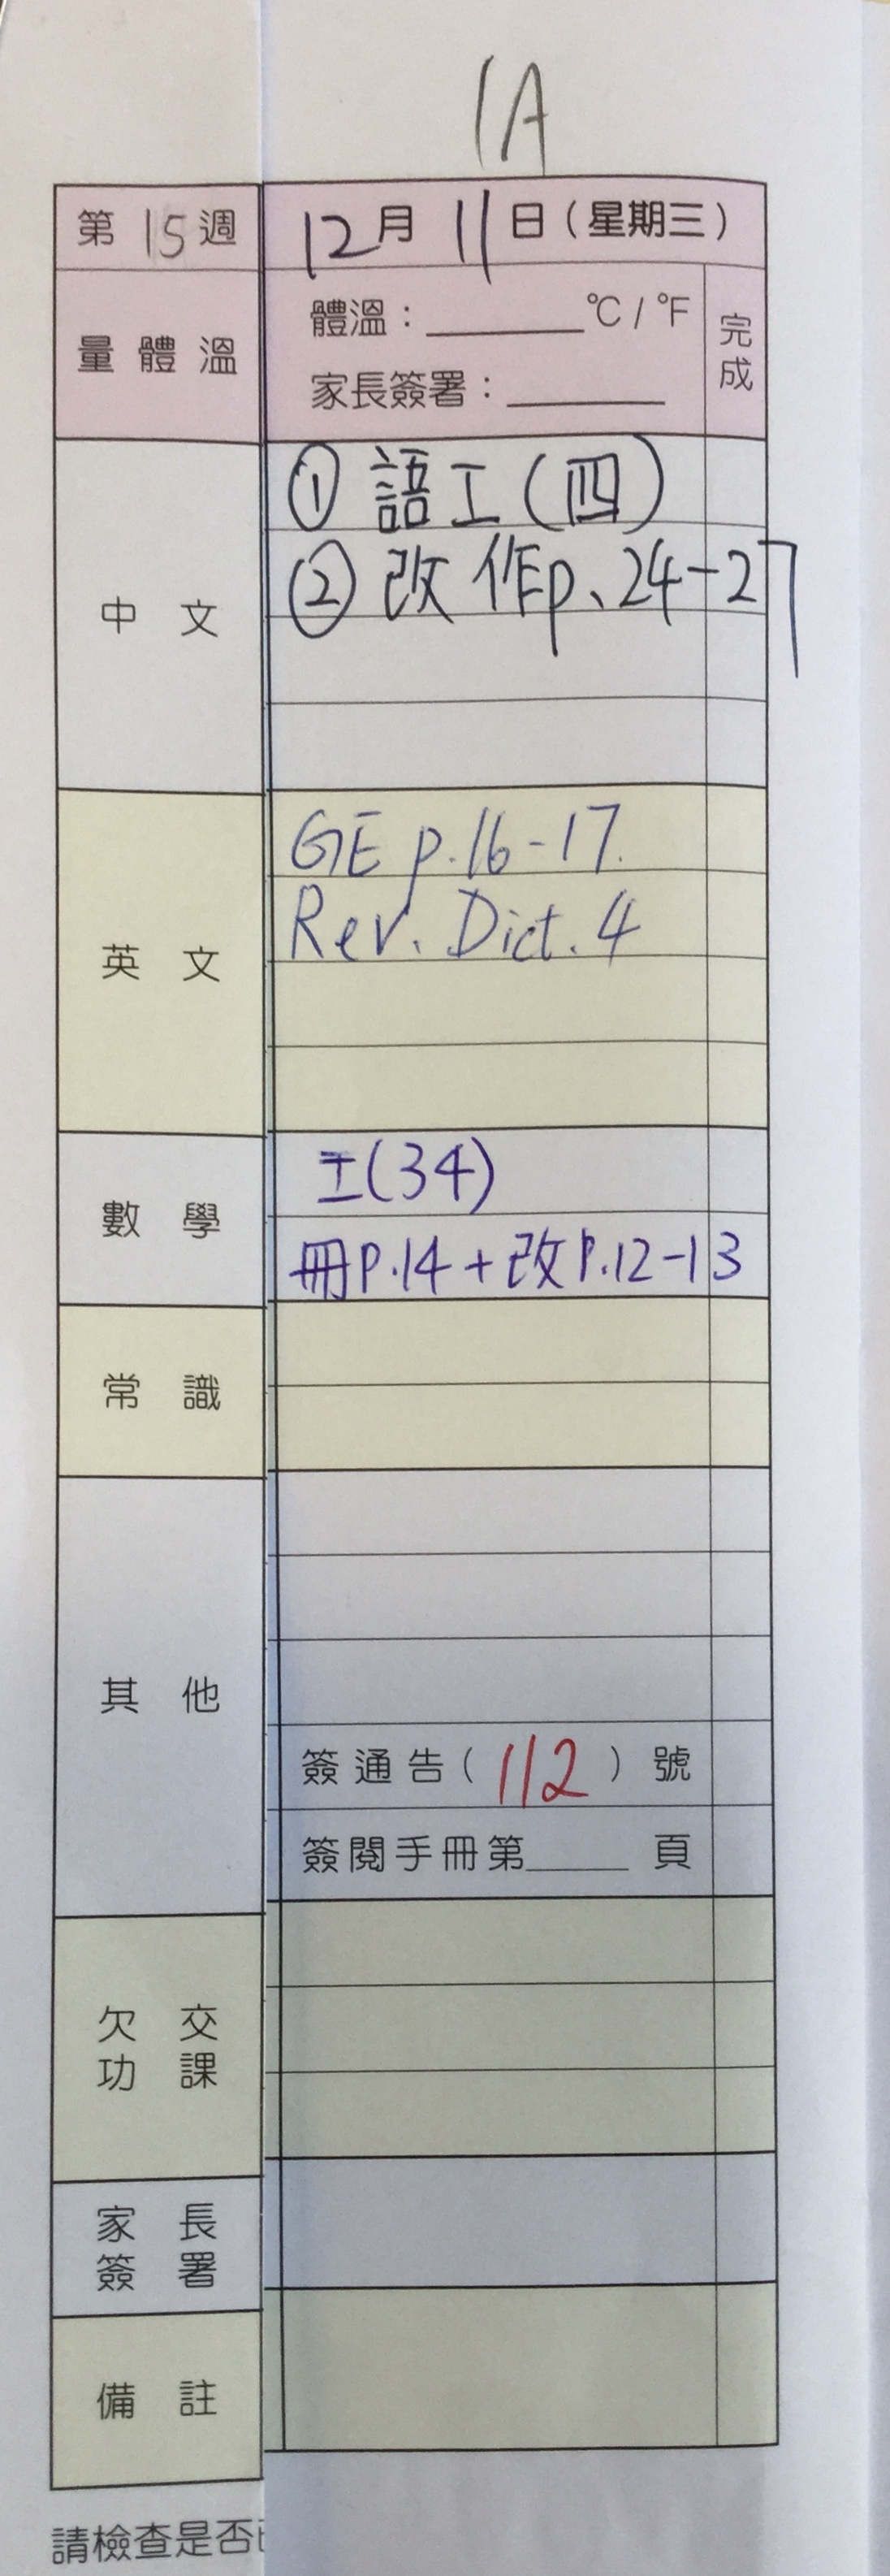 1A
第15週 12月11日(星期三)
量體溫 體溫：______°C / °F 完成
家長簽署：______
中文 ① 語工(四)
② 改作p.24-27
英文 GE p.16-17.
Rev. Dict. 4
數學 工(34)
冊P.14+改P.12-13
常識
其他
簽通告(112)號
簽閱手冊第____頁
欠交功課
家長簽署
備註
請檢查是否